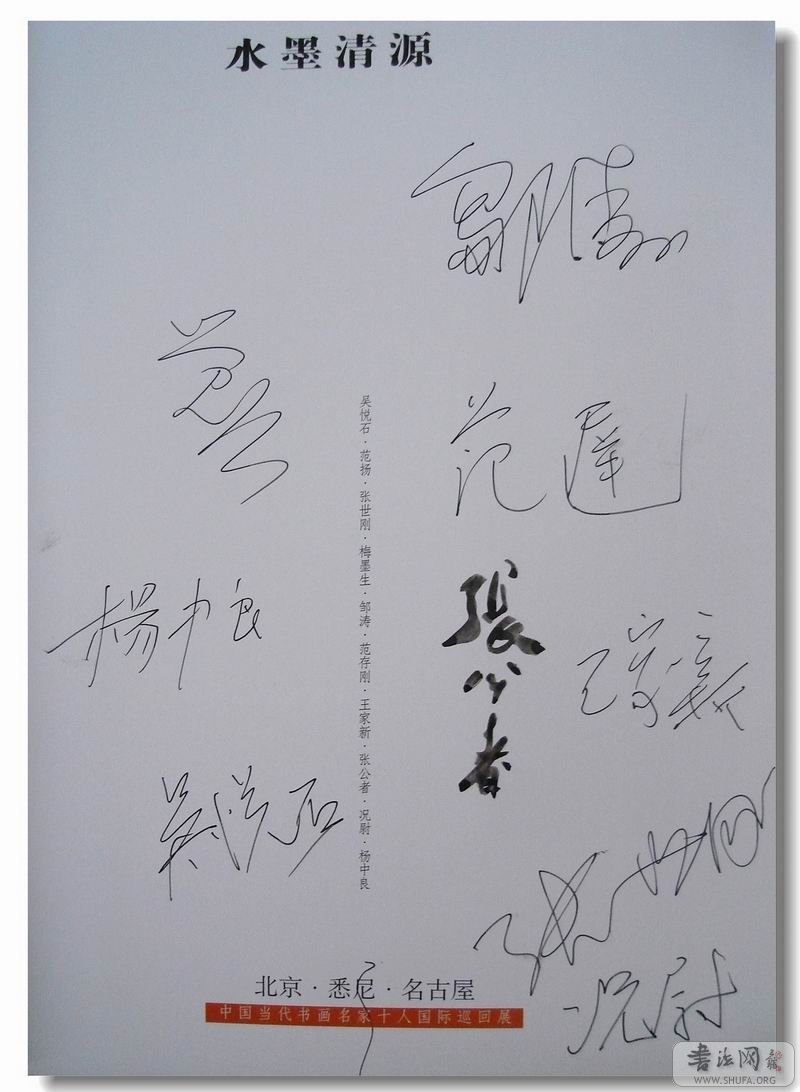 水墨清源
鄒濤
吴悦石·范扬·张世刚·梅墨生·邹涛·范存刚·王家新·张公者·况尉·杨中良
楊中良
張公者
王家新
吴悦石
张世刚
况尉
北京·悉尼·名古屋
中国当代书画名家十人国际巡回展
书法网
WWW.SHUFA.ORG